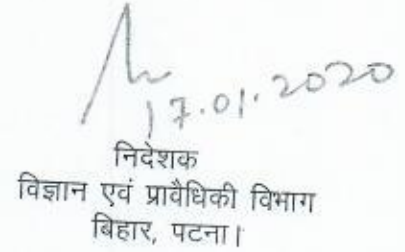 17.01.2020
निदेशक
विज्ञान एवं प्रावैधिकी विभाग
बिहार, पटना।